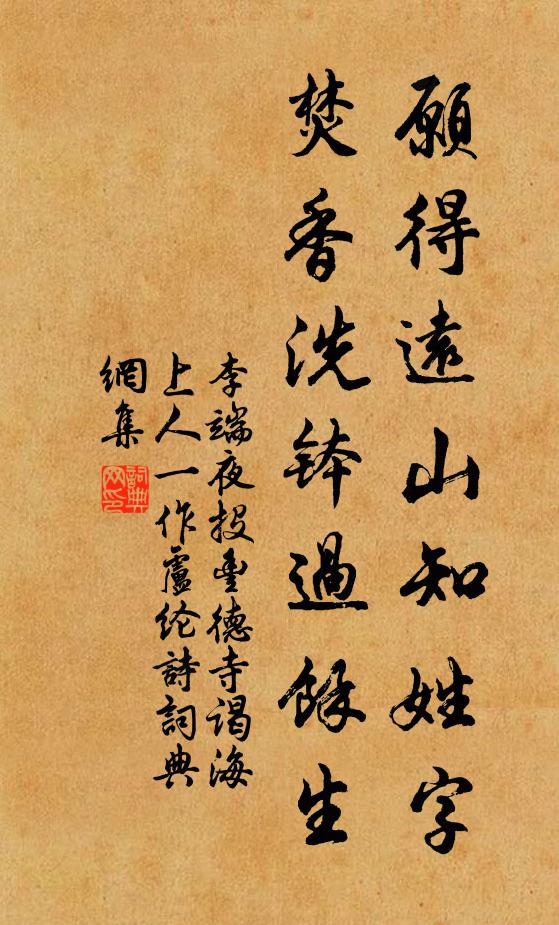 願得遠山知姓字
焚香洗鉢過餘生
李端夜投豐德寺謁海
上人一作盧纶詩詞典
網集
詞典
网印